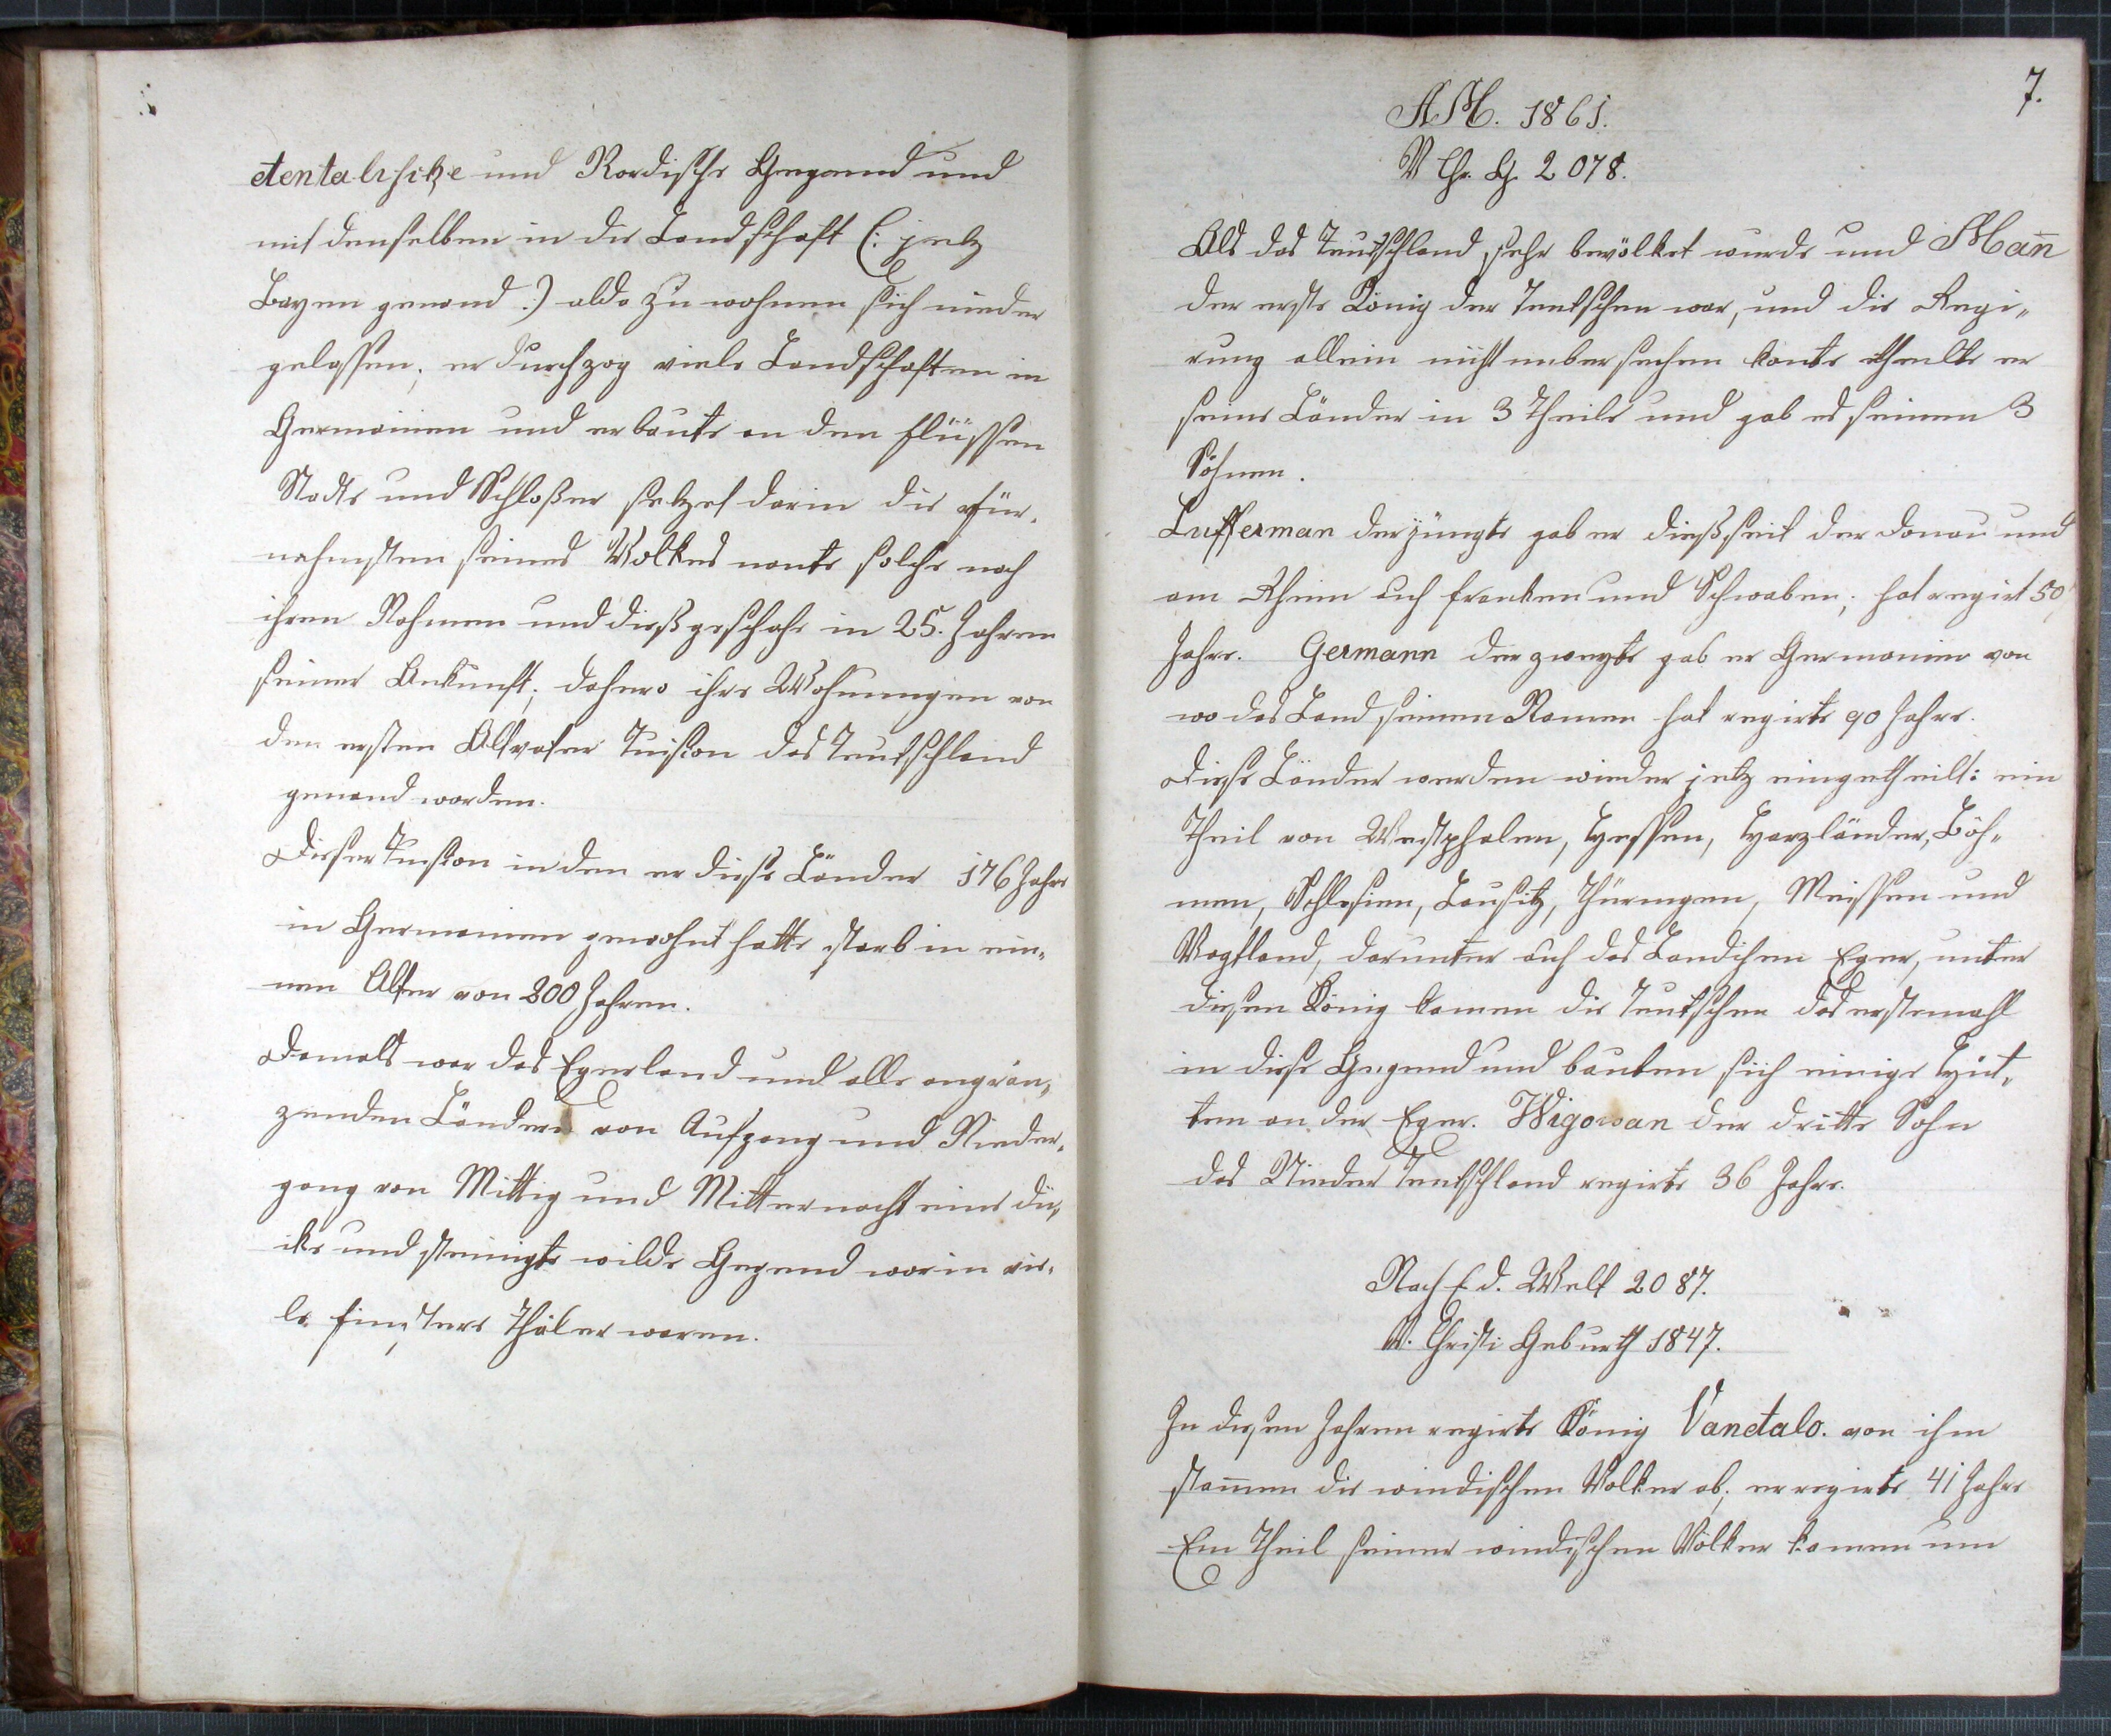 etentalischze und Nordische Gegannd und
mit denselben in die Landschaft (: jetz
Bayen genand :) alda zu wohnen sich nieder
gelassen; er durchzog viele Landschaften in
Germanien und erbaute an den flüssen
Stadte und Schloßer setzet darin die für„
nehmsten seines Volkes nante solche nach
ihren Nahmen und dieß geschahe in 25. Jahren
seiner Ankunft; dahero ihre Wohnungen von
den ersten Altvater Tuiston das Teutschland
genand worden.
Dieser Tuiston in dem er diese Länder 176 Jahre
in Germanien gewohnt hatte starb in ein„
nen Alter von 200 Jahren.
Damals war das Egerland und alle angrän„
zenden Länder von Aufgang und Nieder„
gang von Mittig und Mitternacht eine di„
cke und steinigte wilde Gegend worin vie„
le finstere Thäler waren.
7.
AM. 1861.
V Chr. G. 2078.
Als das Teutschland sehr bevölket wurde und Man̄
der erste König der Teutschen war, und die Regi„
rung allein nicht uebersehen konte theilte er
seine Länder in 3 Theile und gab es seinen 3
Söhnen.
Lufferman der jüngte gab er dießseit der Donau und
am Rhein auch franken und Schwaben; hat regirt 50
Jahre. Germann der zweyte gab er Germanien von
wo das Land seinen Namen hat regirte 90 Jahre.
Diese Länder werden wieder jetz eingetheilt: ein
Theil von Westphalen, Hessen, Harzländer, Böh„
men, Schlesien, Lausitz, Thüringen, Meissen und
Vogtland, darunter auch das Landchen Eger, unter
diesen König kamen die Teutschen das erstemahl
in diese Gegend und bauten sich einige Hüt„
ten an der Eger. Wigowan der dritte Sohn
das Nieder Teutschland regirte 36 Jahre.
Nach E d. Welt 2087.
V. Christi Geburth 1847.
In diesen Jahren regirte König Vandalo. von ihm
stam̄en die windischen Volker ab; er regirte 41 Jahre
Ein Theil seiner windischen Völker kamen um